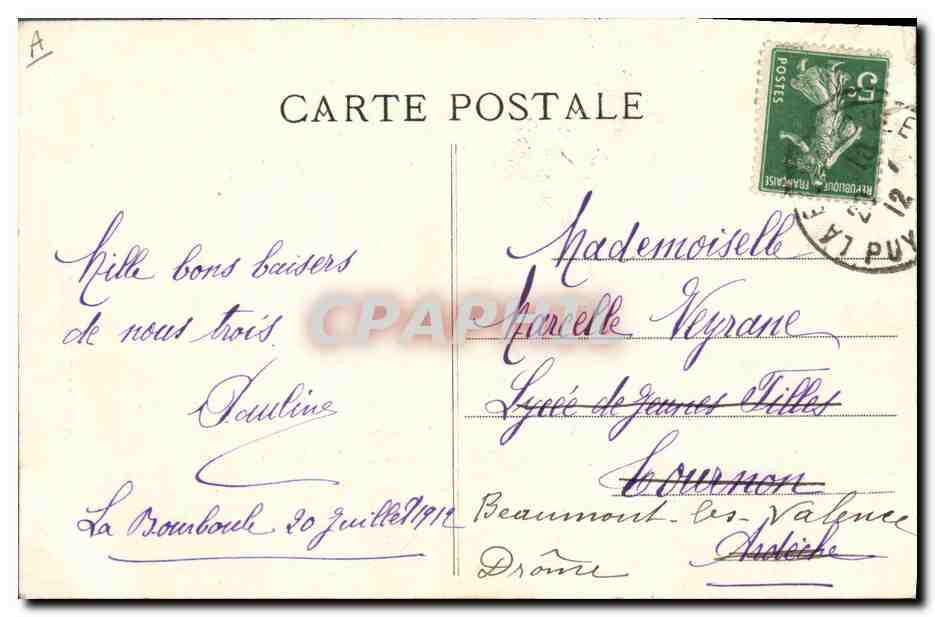 A
CARTE POSTALE
5c
POSTES
REPUBLIQUE FRANÇAISE
LA
20
12
PUY
Mille bons baisers
de nous trois.
Pauline
La Bourboule 20 Juillet 1912
Mademoiselle
Marcelle Veyrane
Lycée de Jeunes Filles
Tournon
Beaumont-les-Valence
Ardèche
Drôme
CPARAMA